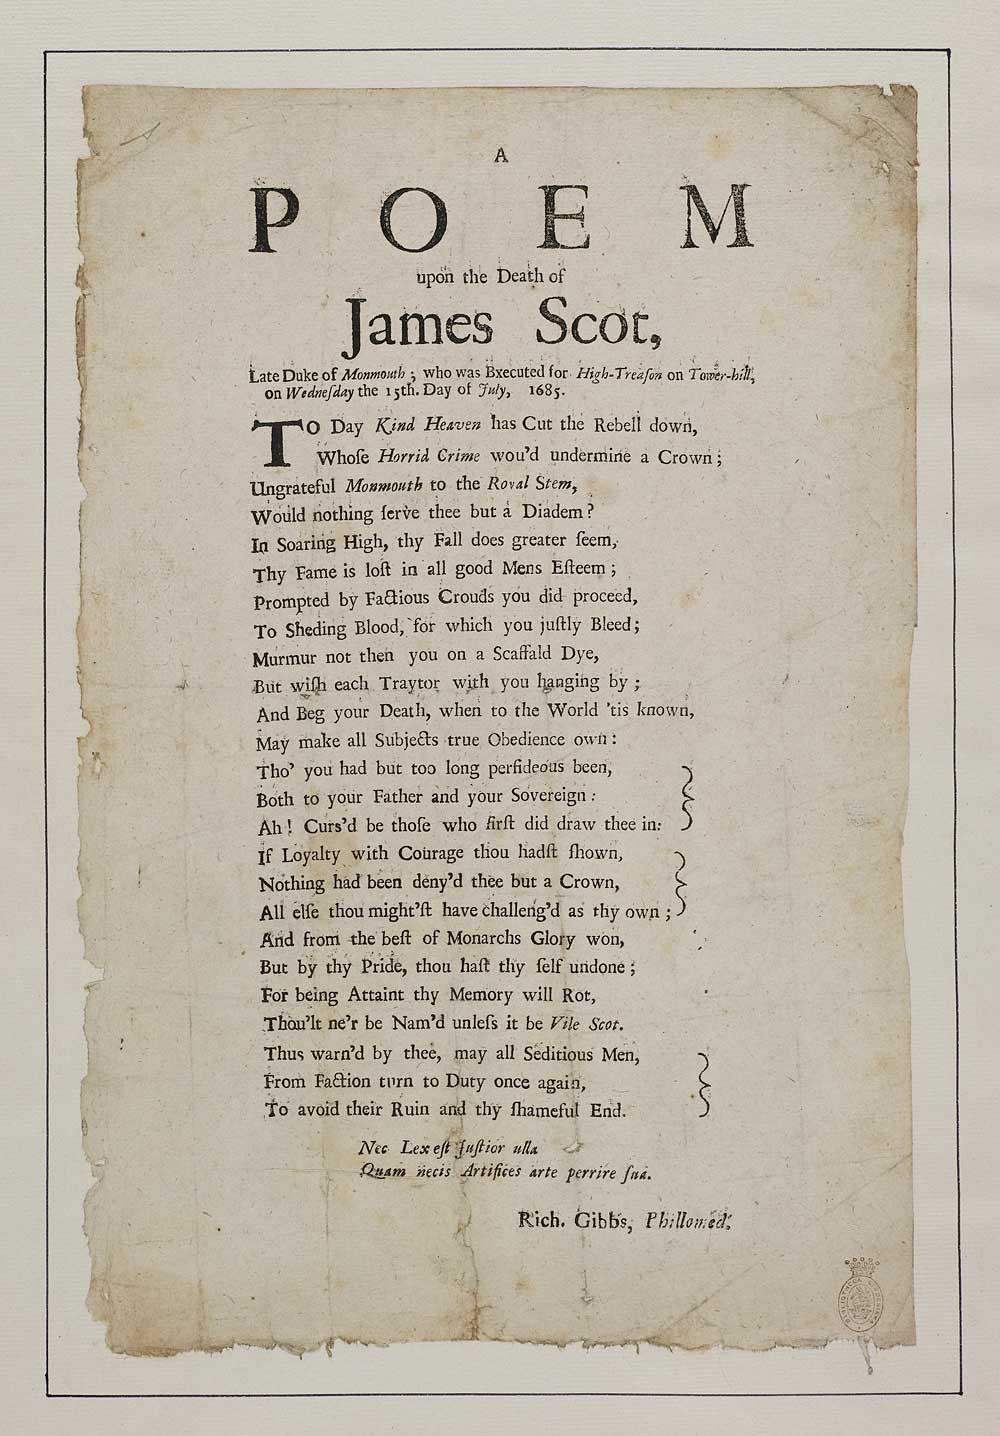 A
POEM
upon the Death of
James Scot,
Late Duke of Monmouth; who was Bxecuted for High-Treaſon on Tower-hill,
on Wedneſday the 15th. Day of July, 1685.
To Day Kind Heaven has Cut the Rebell down,
Whoſe Horrid Crime wou'd undermine a Crown;
Ungrateful Monmouth to the Royal Stem,
Would nothing ſerve thee but a Diadem?
In Soaring High, thy Fall does greater ſeem,
Thy Fame is loſt in all good Mens Eſteem;
Prompted by Factious Crouds you did proceed,
To Sheding Blood, for which you juſtly Bleed;
Murmur not then you on a Scaffald Dye,
But wiſh each Traytor with you hanging by;
And Beg your Death, when to the World 'tis known,
May make all Subjects true Obedience own:
Tho' you had but too long perfideous been,
Both to your Father and your Sovereign:
Ah! Curs'd be thoſe who firſt did draw thee in:
If Loyalty with Courage thou hadſt ſhown,
Nothing had been deny'd thee but a Crown,
All elſe thou might'ſt have challeng'd as thy own;
And from the beſt of Monarchs Glory won,
But by thy Pride, thou haſt thy ſelf undone;
For being Attaint thy Memory will Rot,
Thou'lt ne'r be Nam'd unleſs it be Vile Scot.
Thus warn'd by thee, may all Seditious Men,
From Faction turn to Duty once again,
To avoid their Ruin and thy ſhameful End.
Nec Lex eſt Juſtior ulla
Quam necis Artifices arte perrire ſuâ.
Rich. Gibbs, Phillomed.